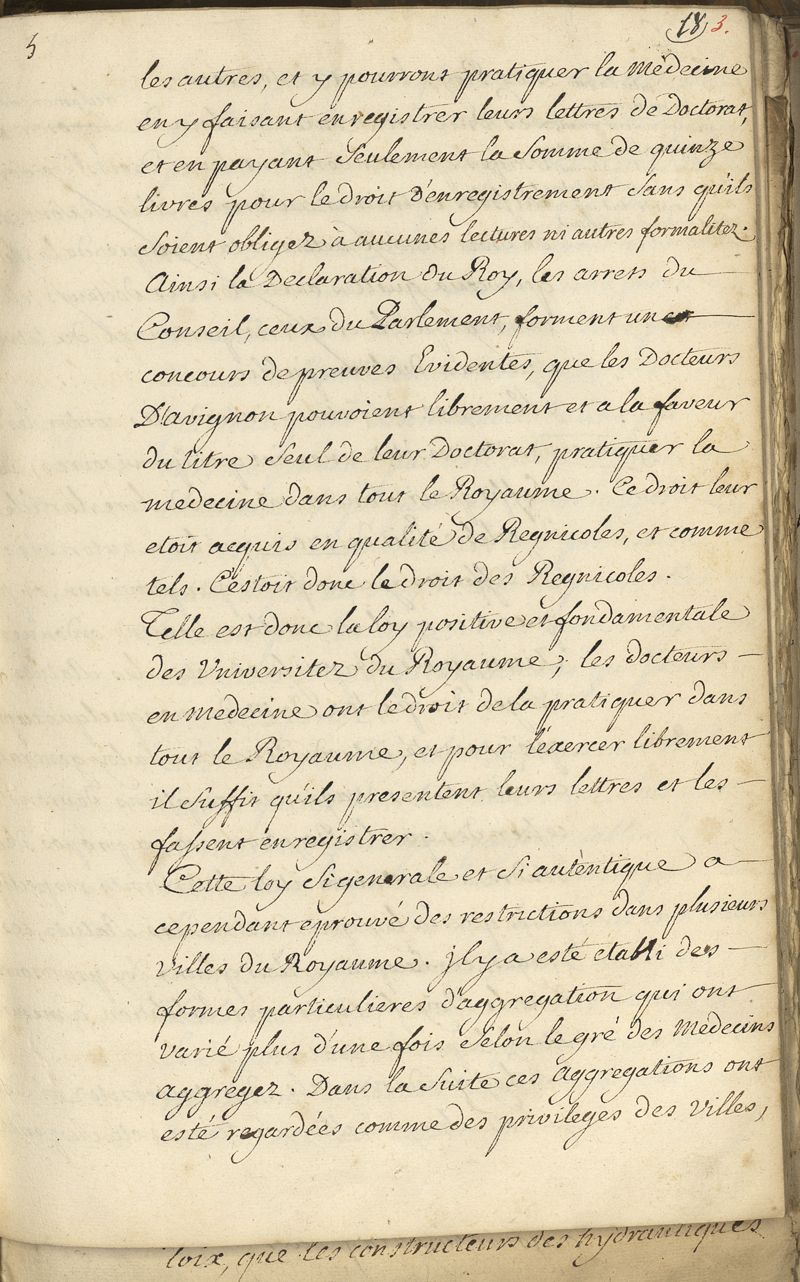 5
18 3.
les autres, et y pourront pratiquer la Médecine
en y faisant enregistrer leurs lettres de Doctorat,
et en payant seulement la somme de quinze
livres pour le droit d'enregistrement sans qu'ils
soient obligez à aucunes lectures ni autres formalitez.
Ainsi la Declaration du Roy, les arrets du
Conseil, ceux du Parlement, forment un
concours de preuves Evidentes, que les Docteurs
D'avignon pouvoient librement et a la faveur
du titre seul de leur Doctorat, pratiquer la
medecine dans tout le Royaume. Ce droit leur
etoit acquis en qualité de Regnicoles, et comme
tels. C'estoit donc le droit des Regnicoles.
Telle est donc la loy positive et fondamentale
des Vniversitez du Royaume; les docteurs
en medecine ont le droit de la pratiquer dans
tout le Royaume, et pour l'éxercer librement
il suffit qu'ils presentent leurs lettres et les
fassent enregistrer.
Cette loy si generale et si autèntique a
cependant eprouvé des restrictions dans plusieurs
villes du Royaume. jl y a esté etabli des
formes particulieres d'aggregation qui ont
varié plus d'une fois selon le gré des Medecins
aggregez. Dans la suite ces aggregations ont
esté regardées comme des privileges des villes,
loix, que les constructeurs des hydrauliques